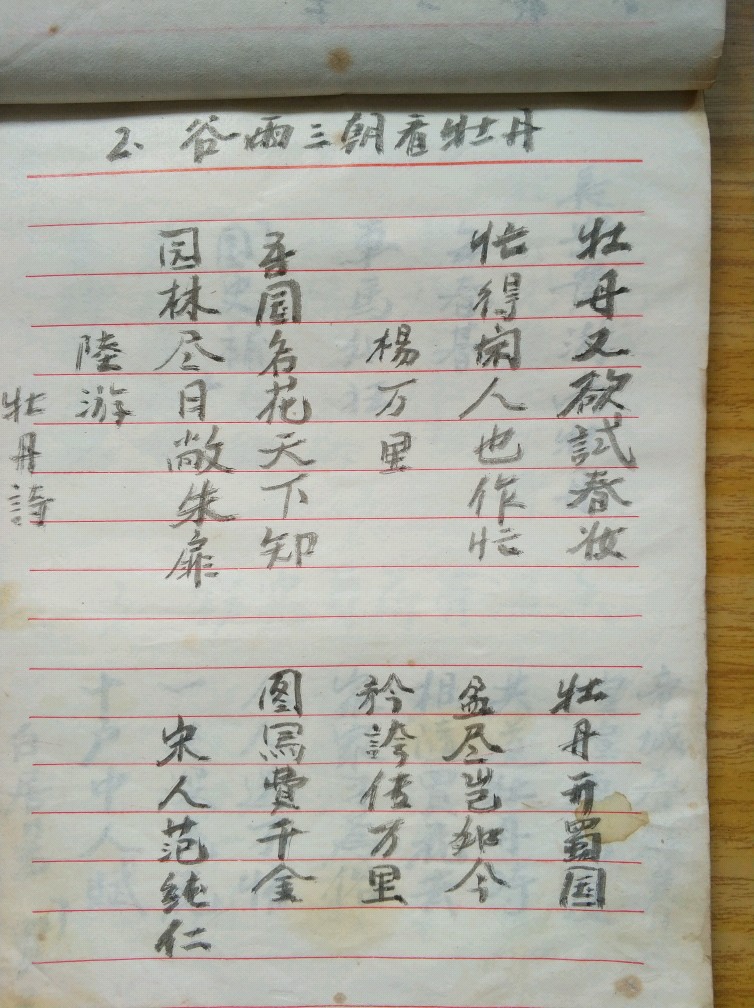 2. 谷雨三朝看牡丹
牡丹又欲試春妆
忙得闲人也作忙
楊万里
吾国名花天下知
园林尽日敞朱扉
陸游
牡丹詩
牡丹开蜀国
盈尽岂如今
矜誇传万里
图寫費千金
宋人范純仁